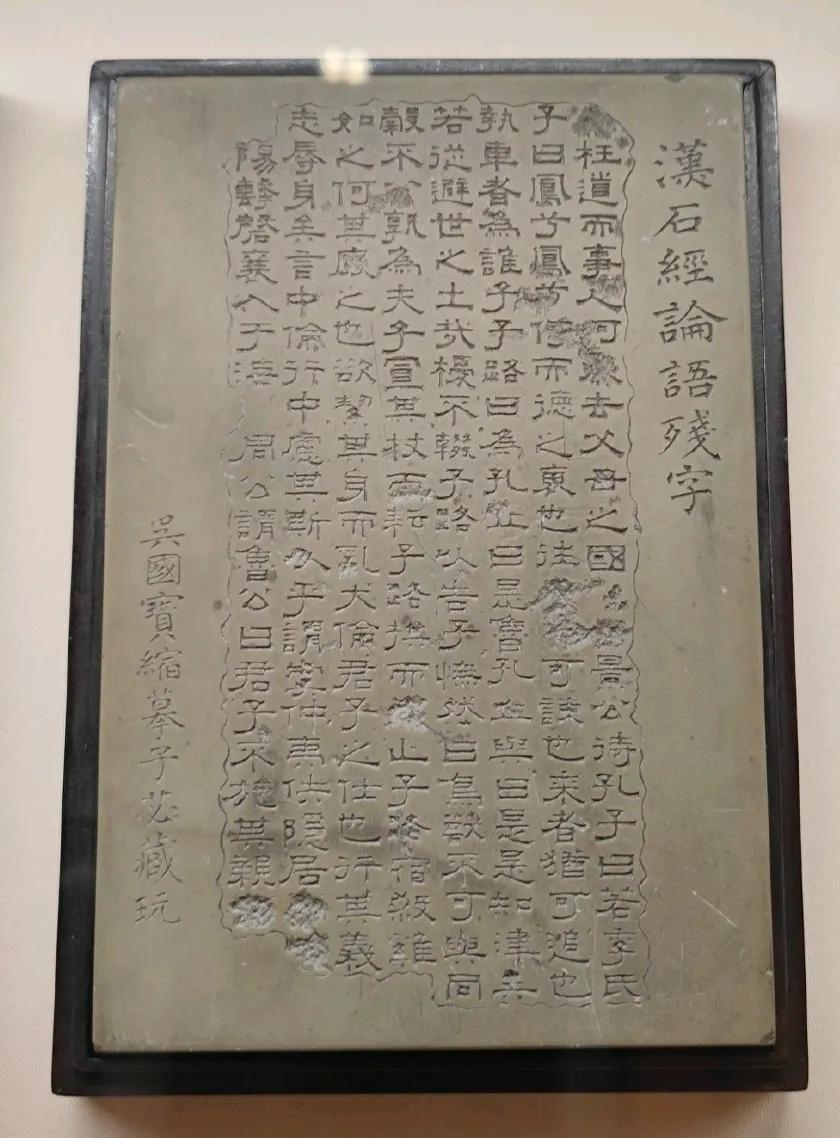 漢石經論語殘字
枉道而事人何必去父母之國景公待孔子曰若季氏
子曰鳳兮鳳兮何而德之衰也往可諫也来者猶可追也
執車者為誰子子路曰為孔丘曰是魯孔丘與曰是是知津矣
若從避世之士㦲櫌不輟子路以告子憮然曰鳥獸不可與同
穀不分孰為夫子置其杖而耘子路拱而止子路宿殺雞
如之何其廢之也欲絜其身而亂大倫君子之仕也行其義
志辱身矣言中倫行中慮其斯以乎謂虞仲夷佚隱居
陽擊磬襄入于海 周公謂魯公曰君子不施其親
吳國寶縮摹子苾藏玩